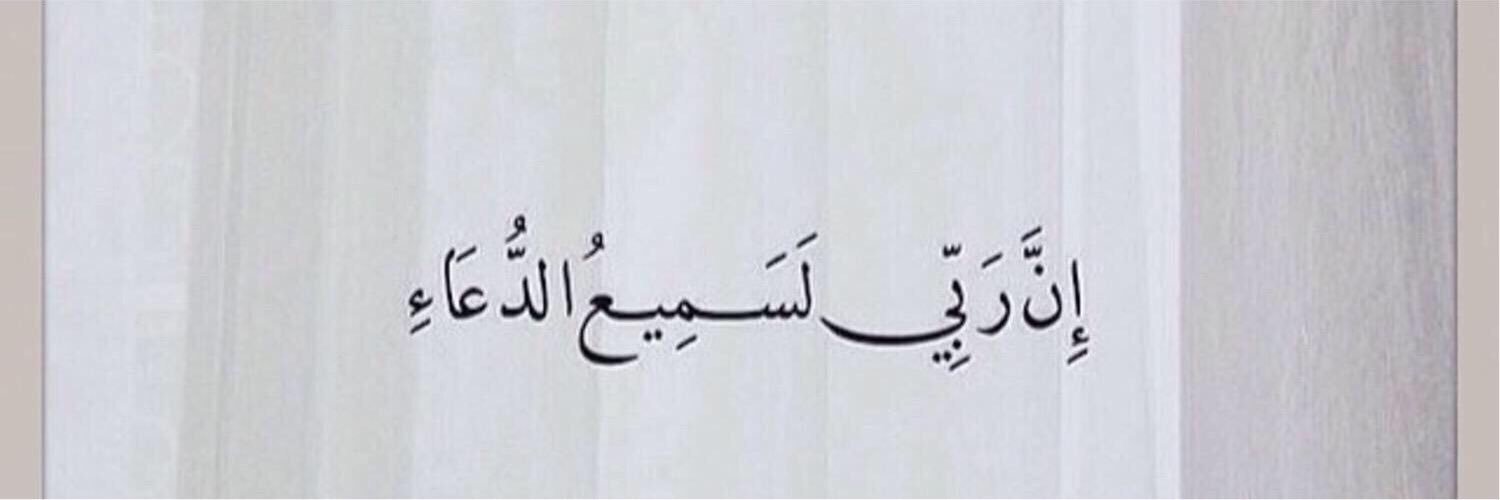 إِنَّ رَبِّي لَسَمِيعُ الدُّعَاءِ